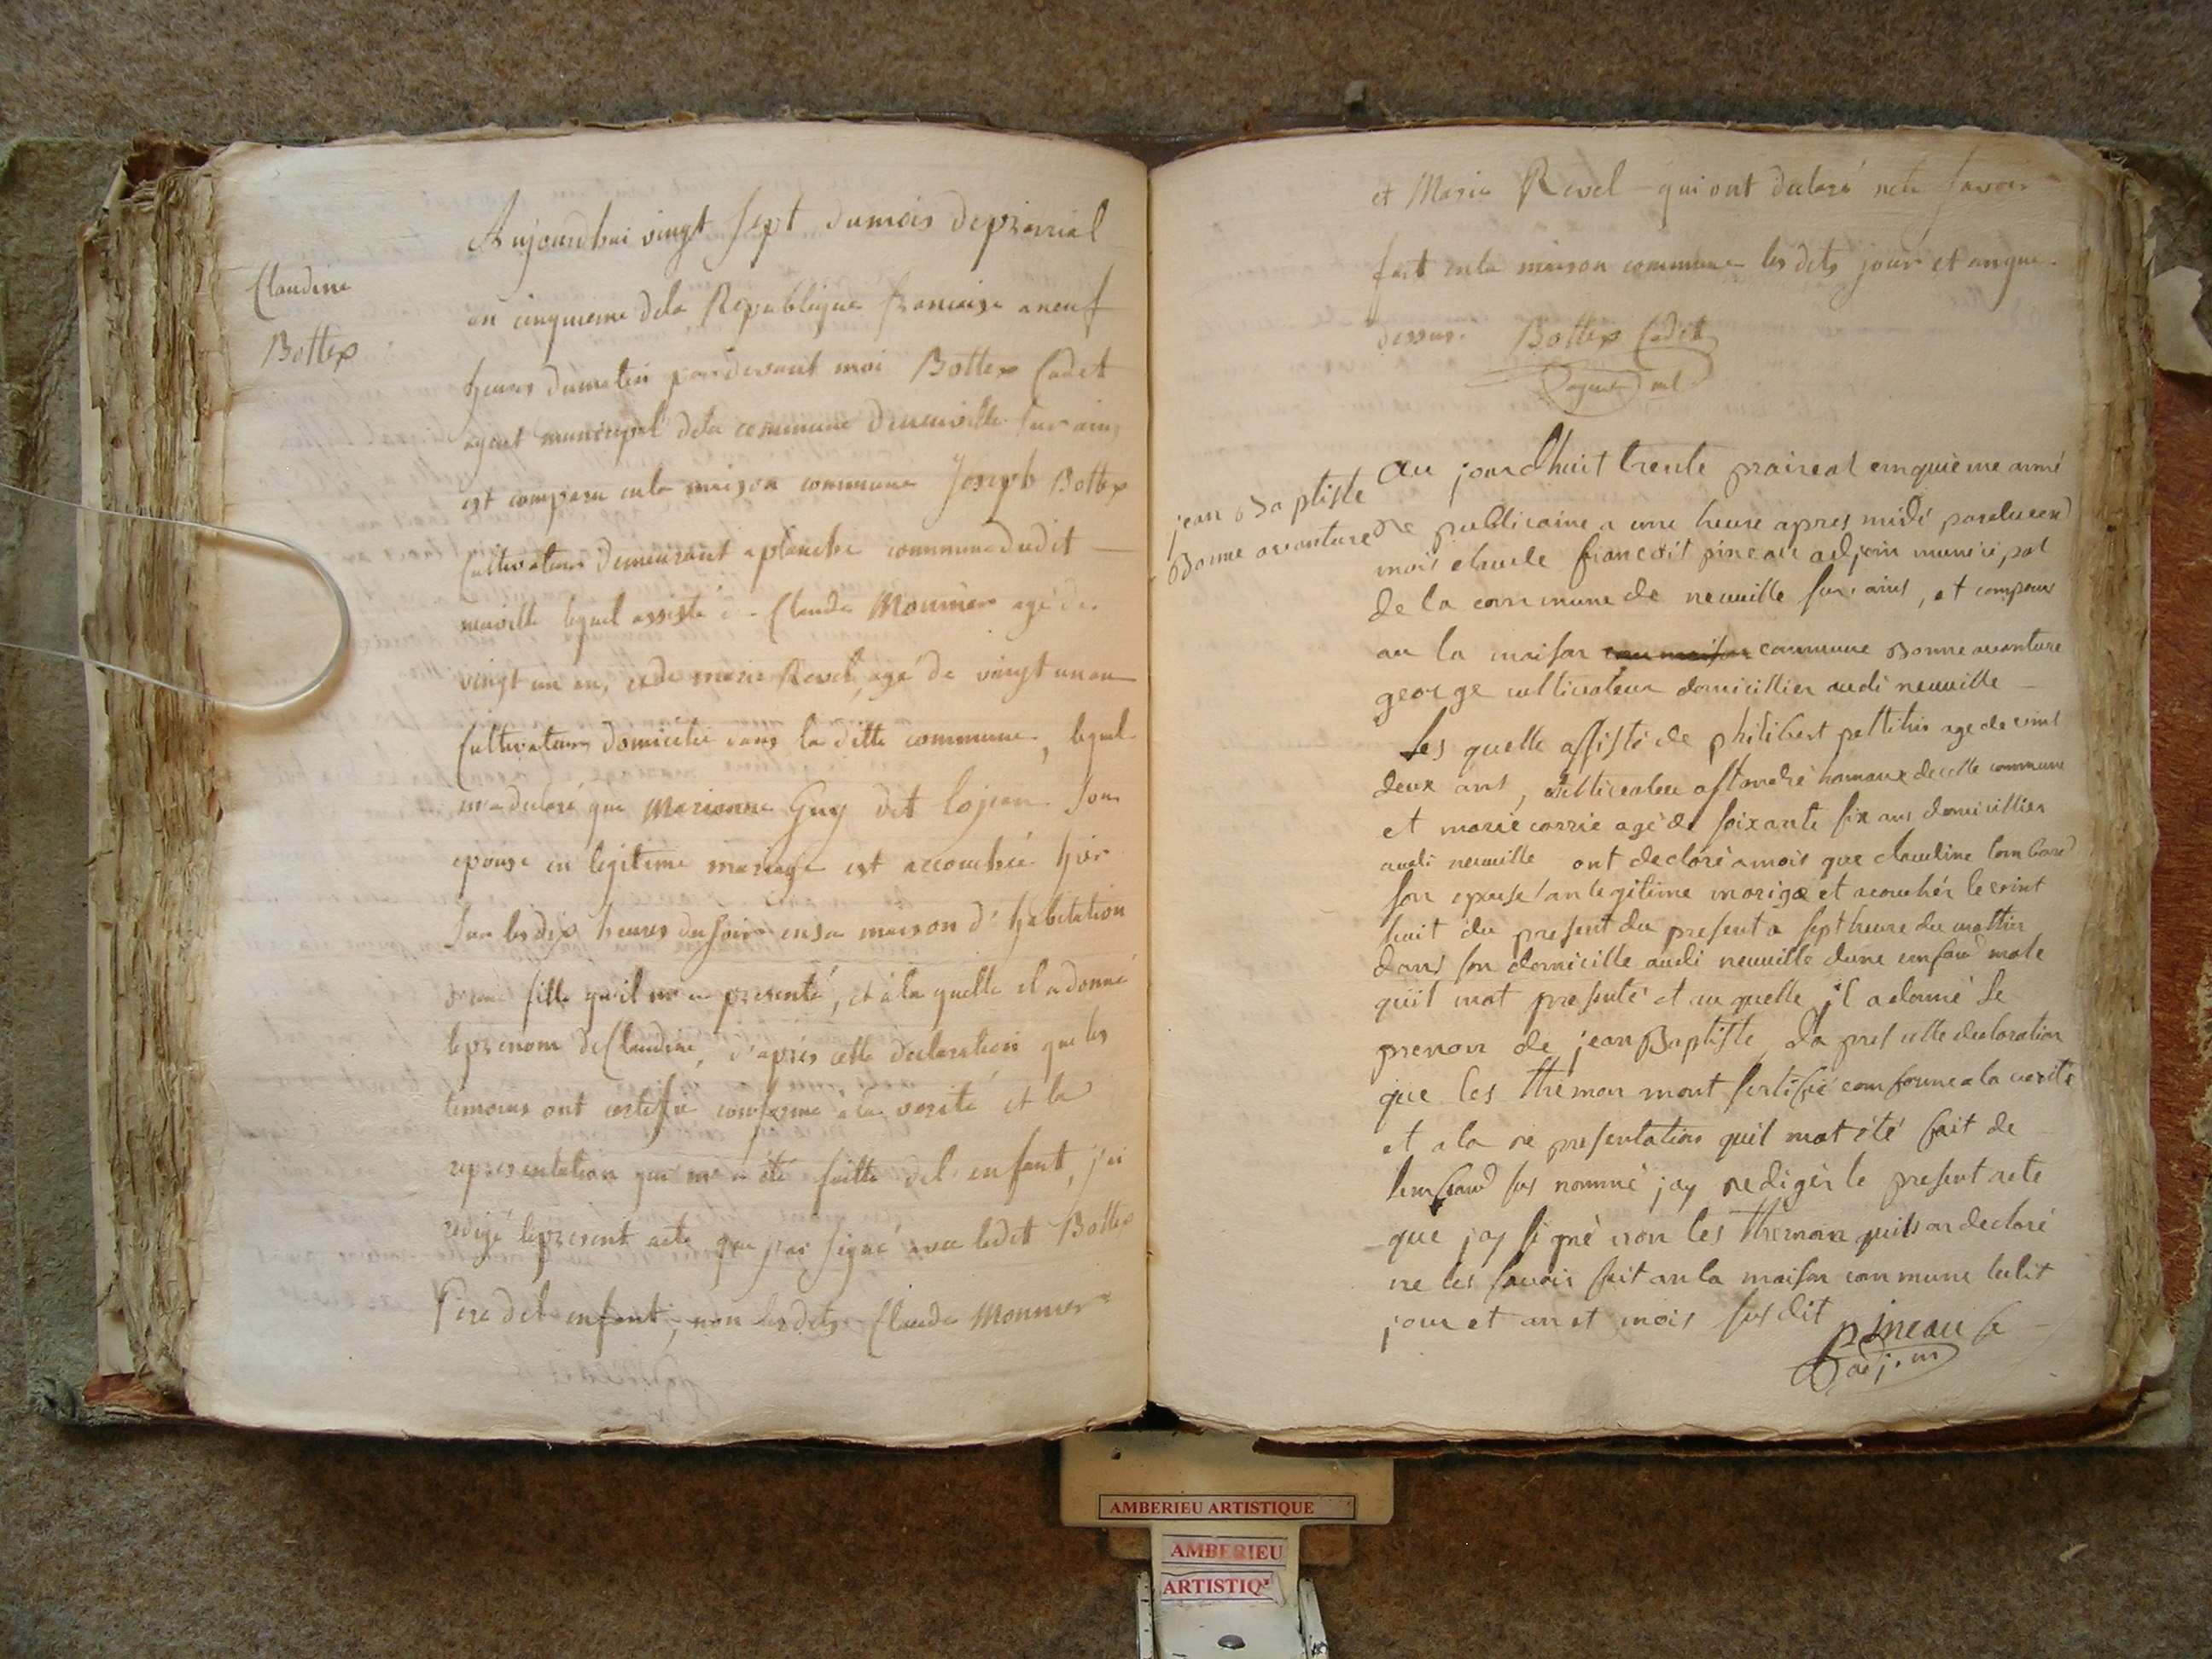 Claudine
Bottex
Aujourdhui vingt sept du mois de prairial
an cinquieme dela Republique francaise a neuf
heures du matin par devant moi Bottex Cadet
agent municipal dela commune deneuville sur ains
est comparu enla maison commune Joseph Bottex
Cultivateur demeurant a planche commune dudit
neuville lequel assisté de Claude Monnier agé de
vingt un an, et de marie Revel, agé de vingt un an
Cultivateurs domicilié dans la ditte commune, lequel
m'a declaré que Marianne Guy dit lojean son
epouse en legitime mariage est accouchée hier
sur les dix heures du soir en sa maison d'habitation
d'une fille qu'il m'a presenté, et à la quelle il a donné
le prenom de Claudine, d'après cette declaration que les
temoins ont certifié conforme à la verité et la
representation qui m'a été faitte del enfant, j'ai
redigé le present acte que j'ai signé avec ledit Bottex
Pere del enfant, non lesdits Claude Monnier
et Marie Revel qui ont declaré ne le savoir
fait enla maison commune les dits jour et an que
dessus. Bottex Cadet
agent mal
jean Baptiste
Bonne avanture
Au jourdhuit trente praireal cinquieme anné
Re publicaine a une heure apres midi pardevend
mois claude francoit pineau adjoin municipal
de la commune de neuville sur ains, et comparu
au la maison commune Bonne avanture
george cultivateur domicillier audi neuville
Les quelle assisté de philibert pettitin age de vint
deux ans, cultivateur de celle commune
et marie corrie agé de soixante six ans domicillier
audi neuville ont declaré a mois que claudine lombard
son epouse an legitime mariga et acouchér le vint
huit du present du present a sept heure du mattin
dans son domicille audi neuville dune emfand male
quil mat presenté et au quelle jl a donné le
prenon de jean Baptiste da pres cette declaration
que les themon mont sertifié comforme a la verité
et a la re presentation quil mat été fait de
lemfand sus nommé jay redigér le present acte
que jay signé non les themon quils on declaré
ne les savoir fait an la maison commune ledit
jour et an et mois susdit pineau
adjoin
AMBERIEU ARTISTIQUE
AMBERIEU
ARTISTIQ